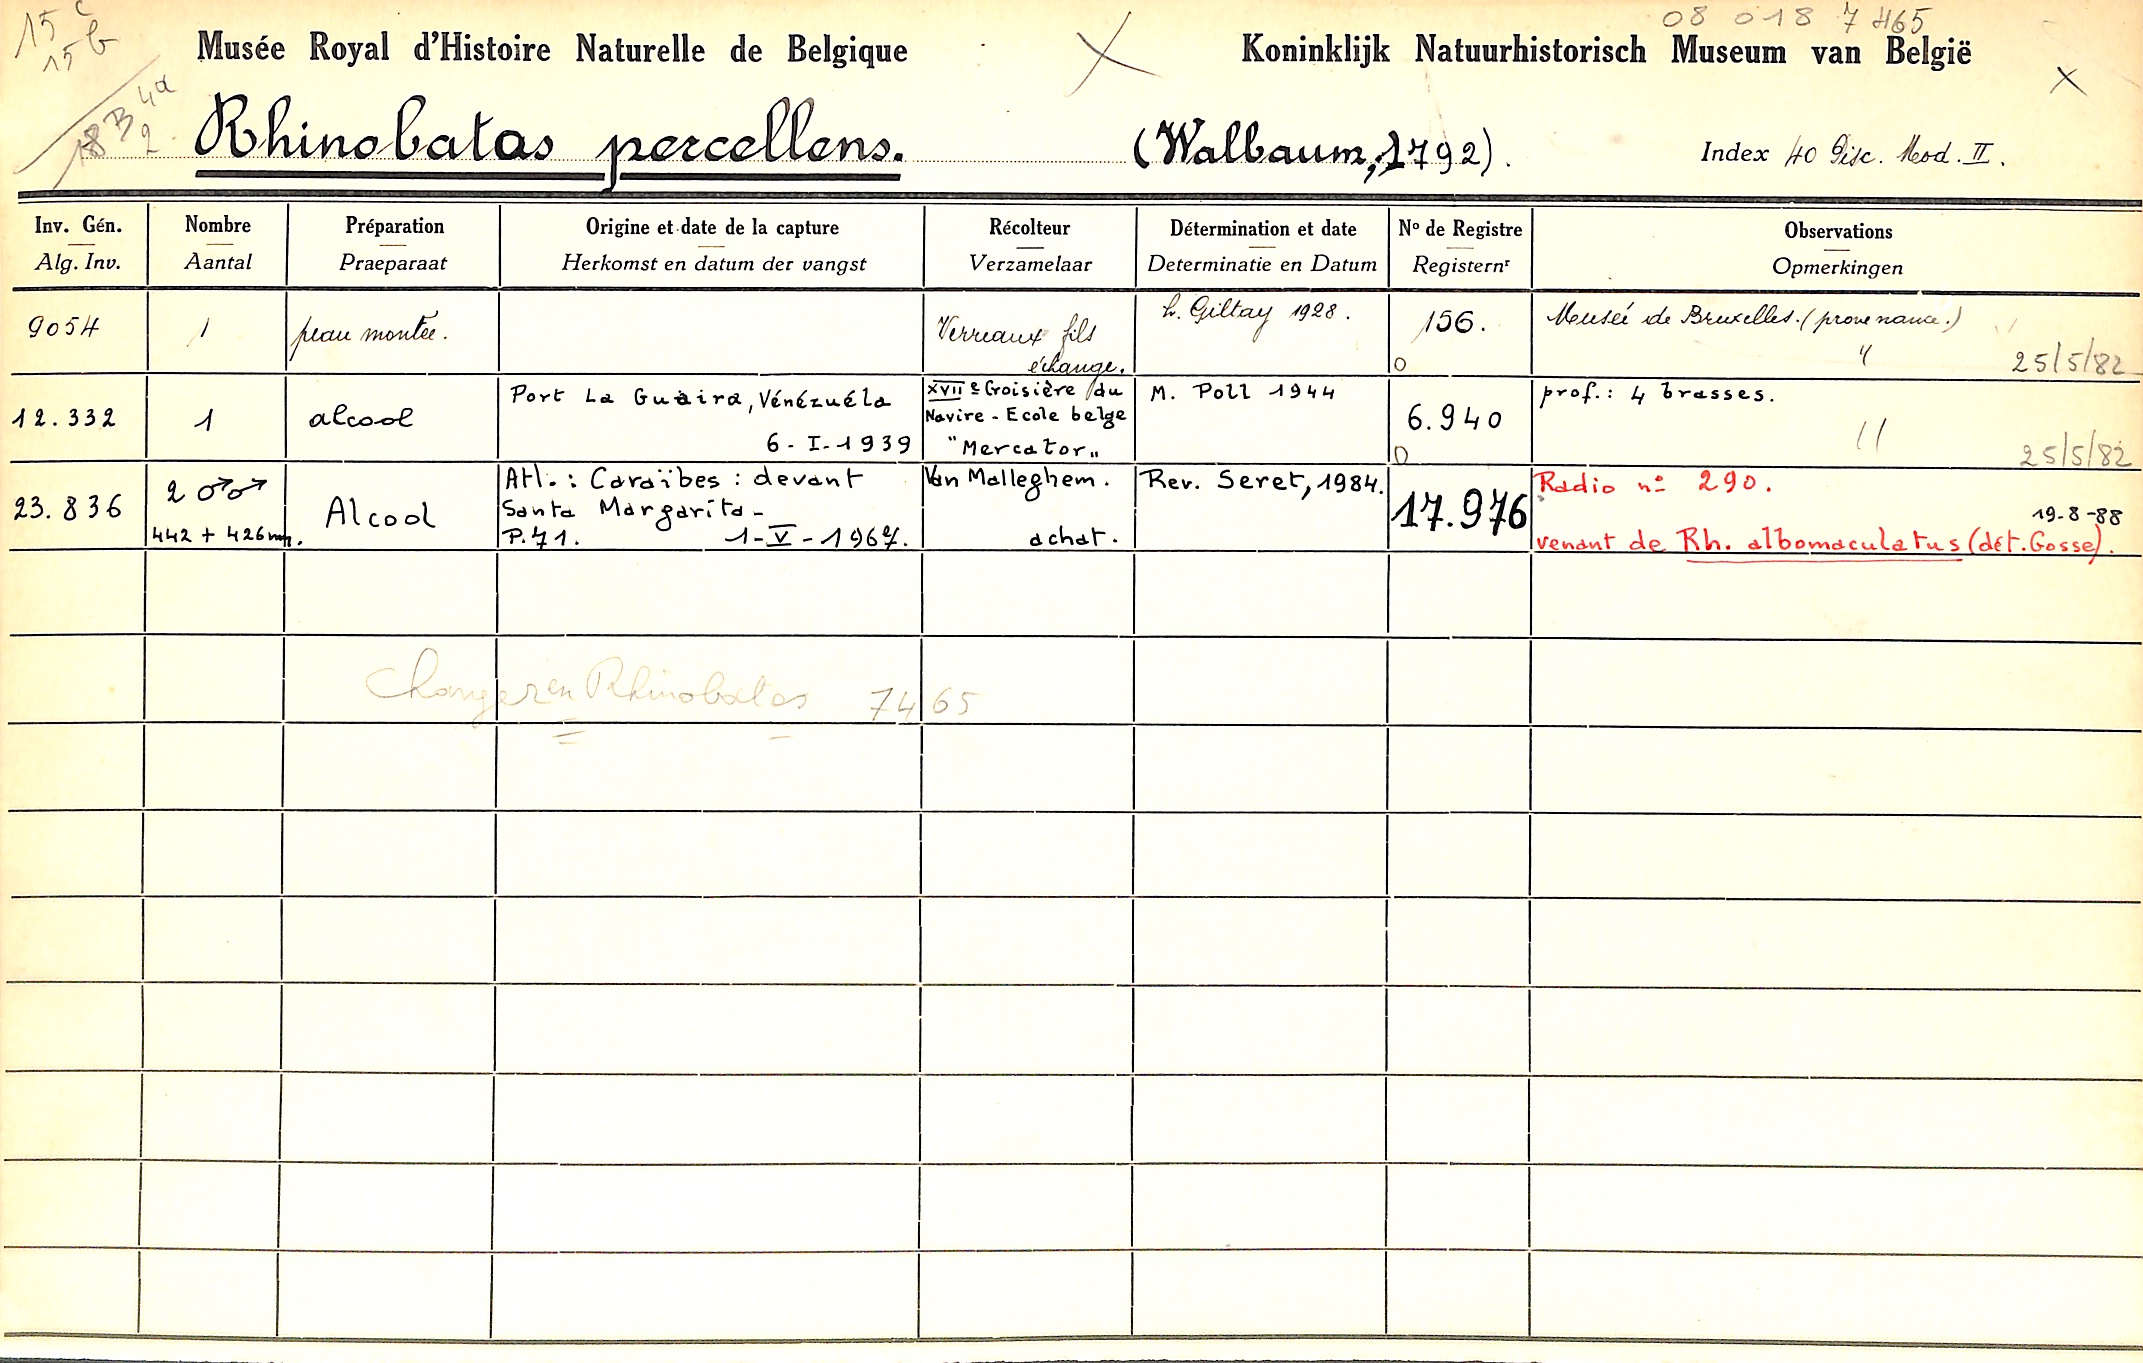 15 c
15 b
08 018 7465
Musée Royal d'Histoire Naturelle de Belgique
Koninklijk Natuurhistorisch Museum van België
18 B 4a
2
Rhinobatos percellens. (Walbaum, 1792).
Index 40 Pisc. Mod. II.
Inv. Gén. Nombre Préparation Origine et date de la capture Récolteur Détermination et date No de Registre Observations
Alg. Inv. Aantal Praeparaat Herkomst en datum der vangst Verzamelaar Determinatie en Datum Registernr Opmerkingen
9054 1 peau montée. Verreaux fils L. Giltay 1928. 156. Musée de Bruxelles. (provenance.)
échange. 0 " 25/5/82
12.332 1 alcool Port La Guaira, Vénézuéla XVIIe Croisière du M. Poll 1944 6.940 prof.: 4 brasses.
Navire-Ecole belge
6-I-1939 "Mercator" 0 " 25/5/82
23.836 2 ♂♂ Alcool Atl.: Caraïbes: devant Van Malleghem. Rev. Seret, 1984. 17.976 Radio no 290.
Santa Margarita- 19-8-88
442 + 426mm. P.71. 1-V-1967. achat. venant de Rh. albomaculatus (dét. Gosse).
Changer en Rhinobatos 7465